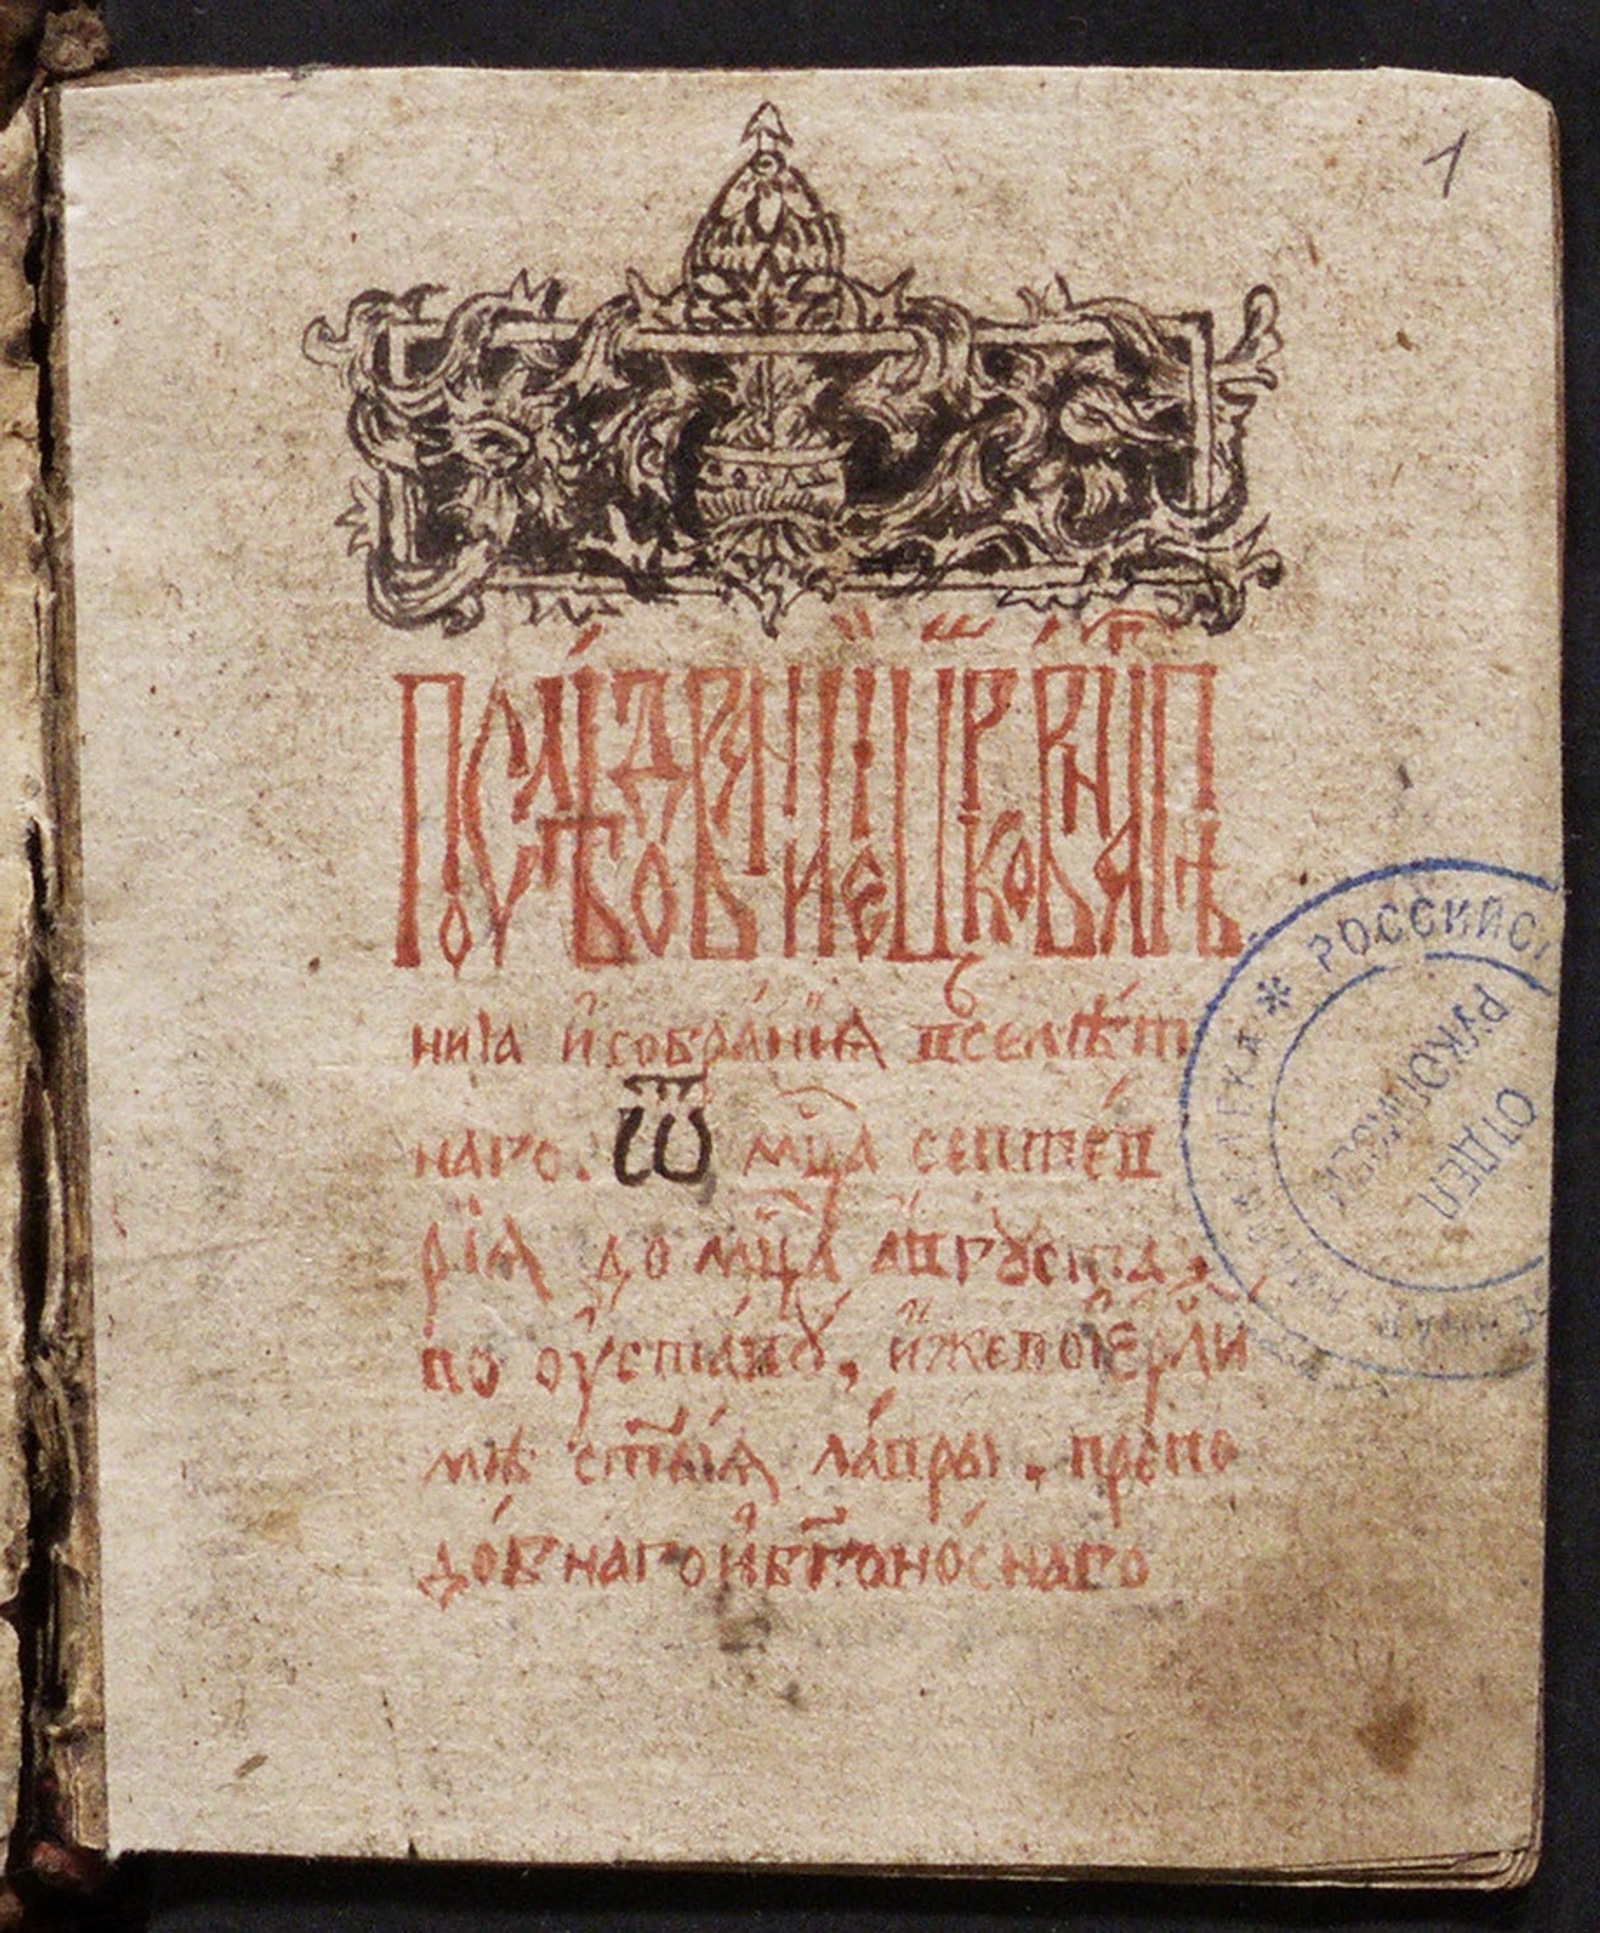 1
Послѣдованїе црко́внаго пѣ
ниıа и҆ собра́нїѧ вселѣ́т
наго. Ѿ мц҃а септе́в
рїѧ до мц҃а а҆́вгꙋста.
по оу҆ста́вꙋ, и҆́же во і҆ерⷭ҇ли́
мѣ ст҃ы́ѧ ла́вры. препо
до́бнаго и҆ бг҃оно́снаго
РОССИЙС
БИБЛИОТЕКА
ОТДЕЛ
РУКОПИСЕЙ